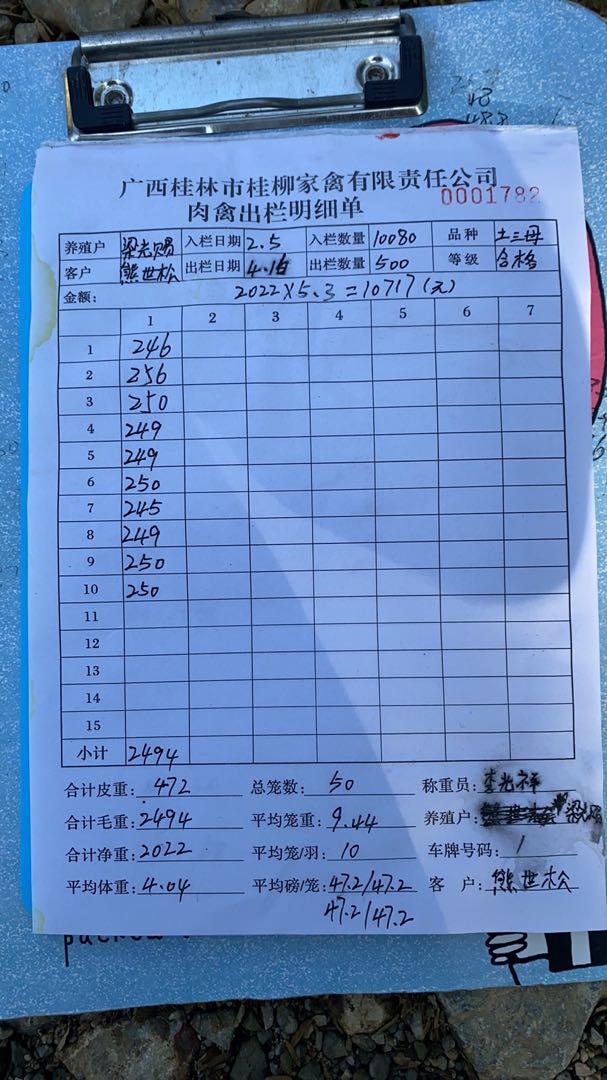 广西桂林市桂柳家禽有限责任公司
肉禽出栏明细单
0001782
养殖户 梁光赐 入栏日期 2.5 入栏数量 10080 品种 土三母
客户 熊世松 出栏日期 4.16 出栏数量 500 等级 合格
金额: 2022×5.3=10717(元)
1 2 3 4 5 6 7
1 246
2 256
3 250
4 249
5 249
6 250
7 245
8 249
9 250
10 250
11
12
13
14
15
小计 2494
合计皮重: 472 总笼数: 50 称重员: 李光祥
合计毛重: 2494 平均笼重: 9.44 养殖户: 梁光赐
合计净重: 2022 平均笼/羽: 10 车牌号码: 1
平均体重: 4.04 平均磅/笼: 47.2/47.2 客 户: 熊世松
47.2/47.2